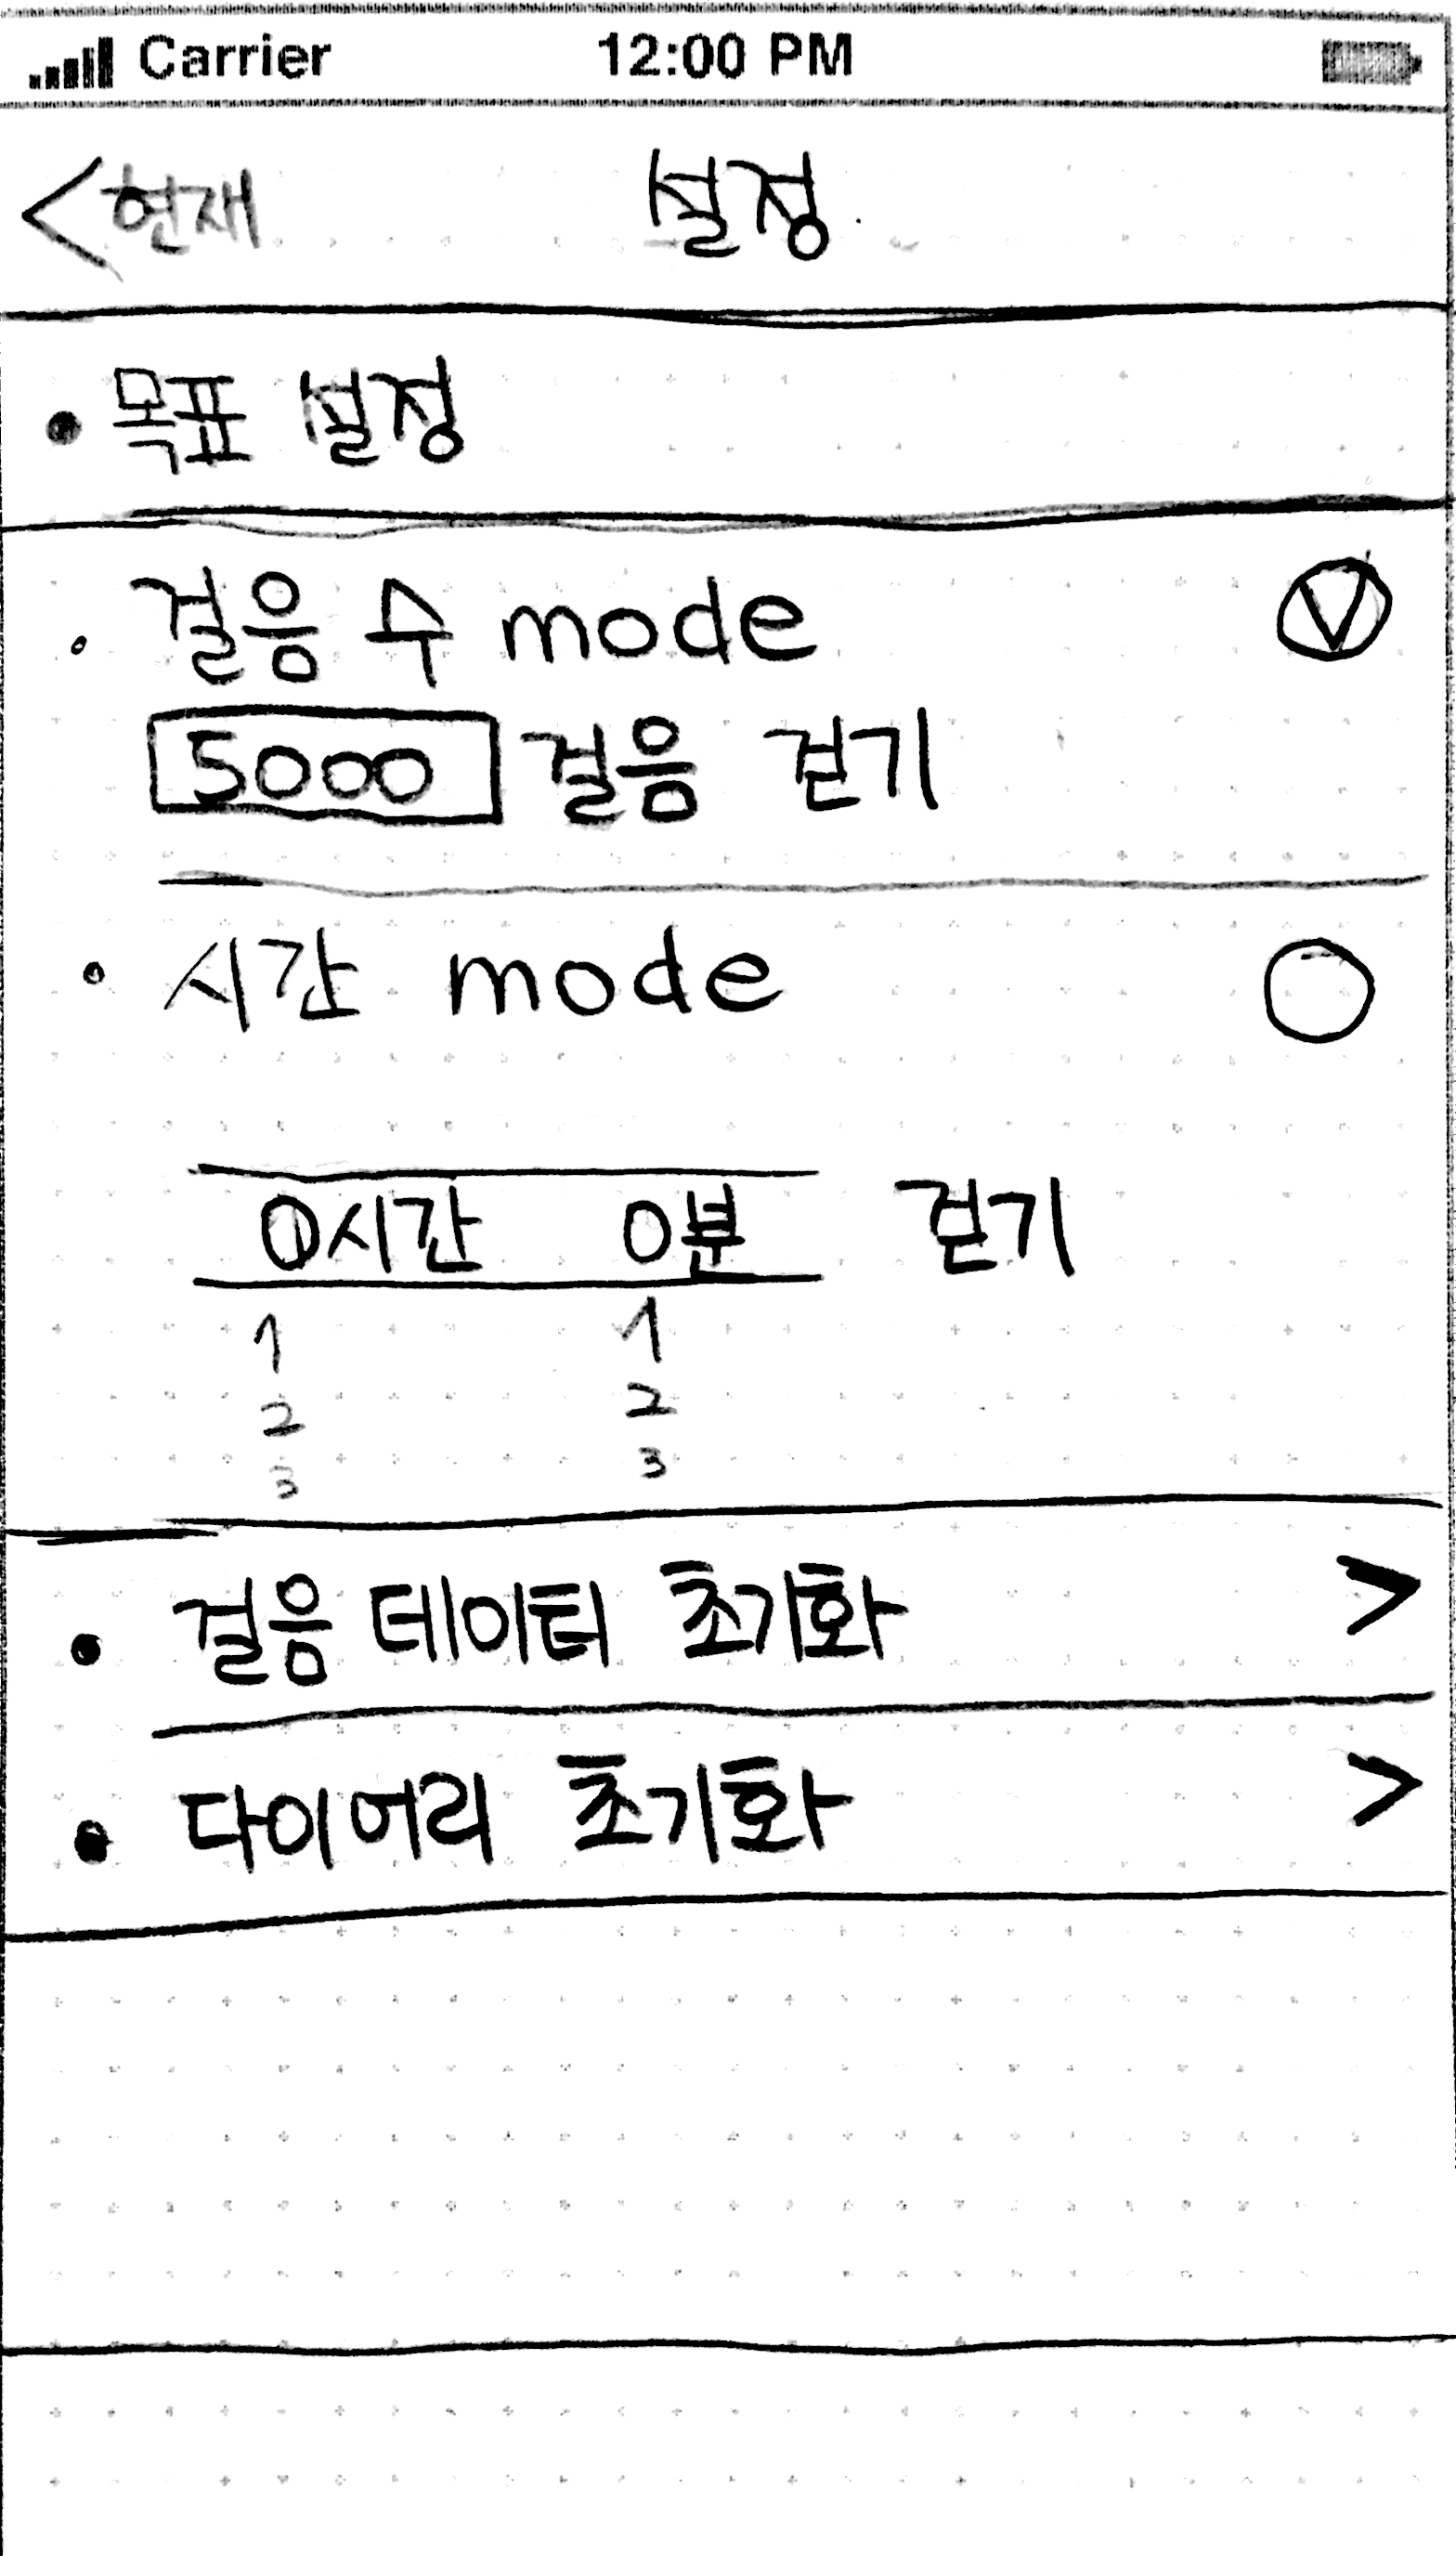 Carrier 12:00 PM
<현재 설정
• 목표 설정
• 걸음 수 mode
5000 걸음 걷기
• 시간 mode
0시간 0분 걷기
1 1
2 2
3 3
• 걸음 데이터 초기화 >
• 다이어리 초기화 >